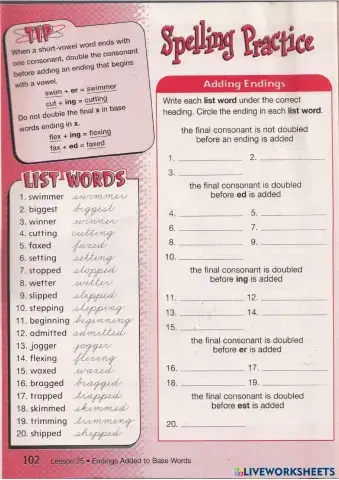 TIP
When a short-vowel word ends with
one consonant, double the consonant
before adding an ending that begins
with a vowel.
swim + er = swimmer
cut + ing = cutting
Do not double the final x in base
words ending in x.
flex + ing = flexing
fax + ed = faxed
LIST WORDS
1. swimmer swimmer
2. biggest biggest
3. winner winner
4. cutting cutting
5. faxed faxed
6. setting setting
7. stopped stopped
8. wetter wetter
9. slipped slipped
10. stepping stepping
11. beginning beginning
12. admitted admitted
13. jogger jogger
14. flexing flexing
15. waxed waxed
16. bragged bragged
17. trapped trapped
18. skimmed skimmed
19. trimming trimming
20. shipped shipped
102 Lesson 25 • Endings Added to Base Words
Spelling Practice
Adding Endings
Write each list word under the correct
heading. Circle the ending in each list word.
the final consonant is not doubled
before an ending is added
1. 2.
3.
the final consonant is doubled
before ed is added
4. 5.
6. 7.
8. 9.
10.
the final consonant is doubled
before ing is added
11. 12.
13. 14.
15.
the final consonant is doubled
before er is added
16. 17.
18. 19.
the final consonant is doubled
before est is added
20.
LIVEWORKSHEETS